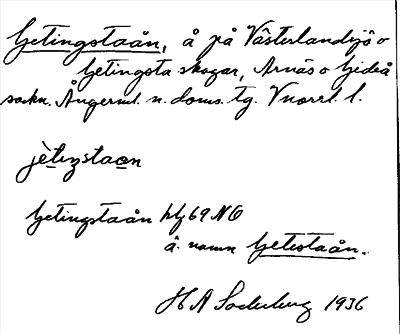 Getingstaån, å på Västerlandsjö o
Getingsta skogar, Arnäs o Gideå
sockn. Ångerml. n. doms. tg. Vnorrl. l.
jètiŋstaon
Getingstaån hfj 69 NO
å. namn Getestaån.
H A Söderberg 1936